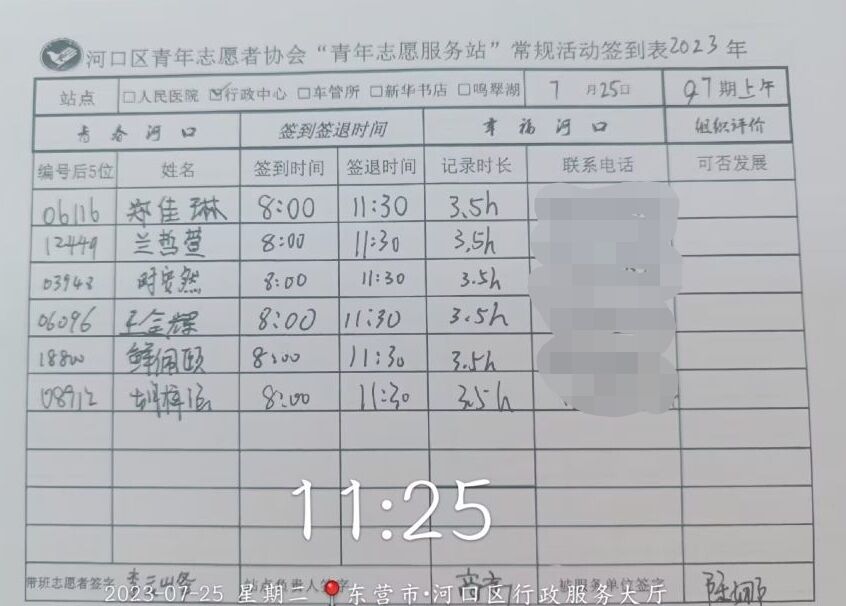 河口区青年志愿者协会“青年志愿服务站”常规活动签到表2023年
站点 □人民医院 ☑行政中心 □车管所 □新华书店 □鸣翠湖 7月25日 97期上午
青春河口 签到签退时间 幸福河口 组织评价
编号后5位 姓名 签到时间 签退时间 记录时长 联系电话 可否发展
06116 郑佳琳 8:00 11:30 3.5h
12449 兰哲萱 8:00 11:30 3.5h
03943 时安然 8:00 11:30 3.5h
06096 王金辉 8:00 11:30 3.5h
18800 鲜佩颐 8:00 11:30 3.5h
08912 胡梓涵 8:00 11:30 3.5h
11:25
带班志愿者签字 站点负责人签字 被服务单位签字
2023-07-25 星期二 东营市·河口区行政服务大厅